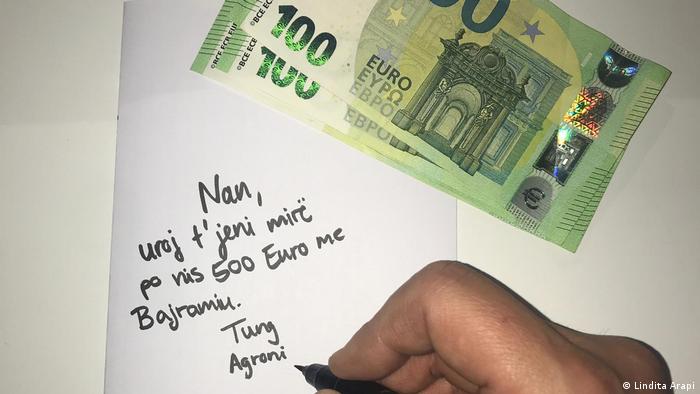 ©BCE ECB EZB
©BCE ECB
100
100
00
EURO
ΕΥΡΩ
ЕВРО
ЕВРО
€
Nan,
uroj t'jeni mirë
po nis 500 Euro me
Bajramin.
Tung
Agroni
© Lindita Arapi